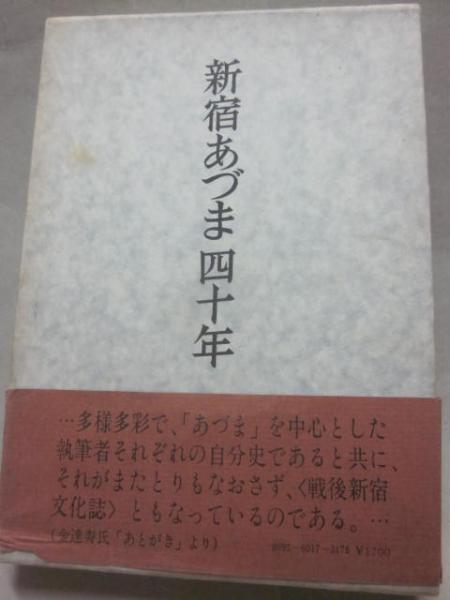 新宿あづま四十年
…多様多彩で、「あづま」を中心とした
執筆者それぞれの自分史であると共に、
それがまたとりもなおさず、〈戦後新宿
文化誌〉ともなっているのである。…
(金達寿氏「あとがき」より)
¥1700